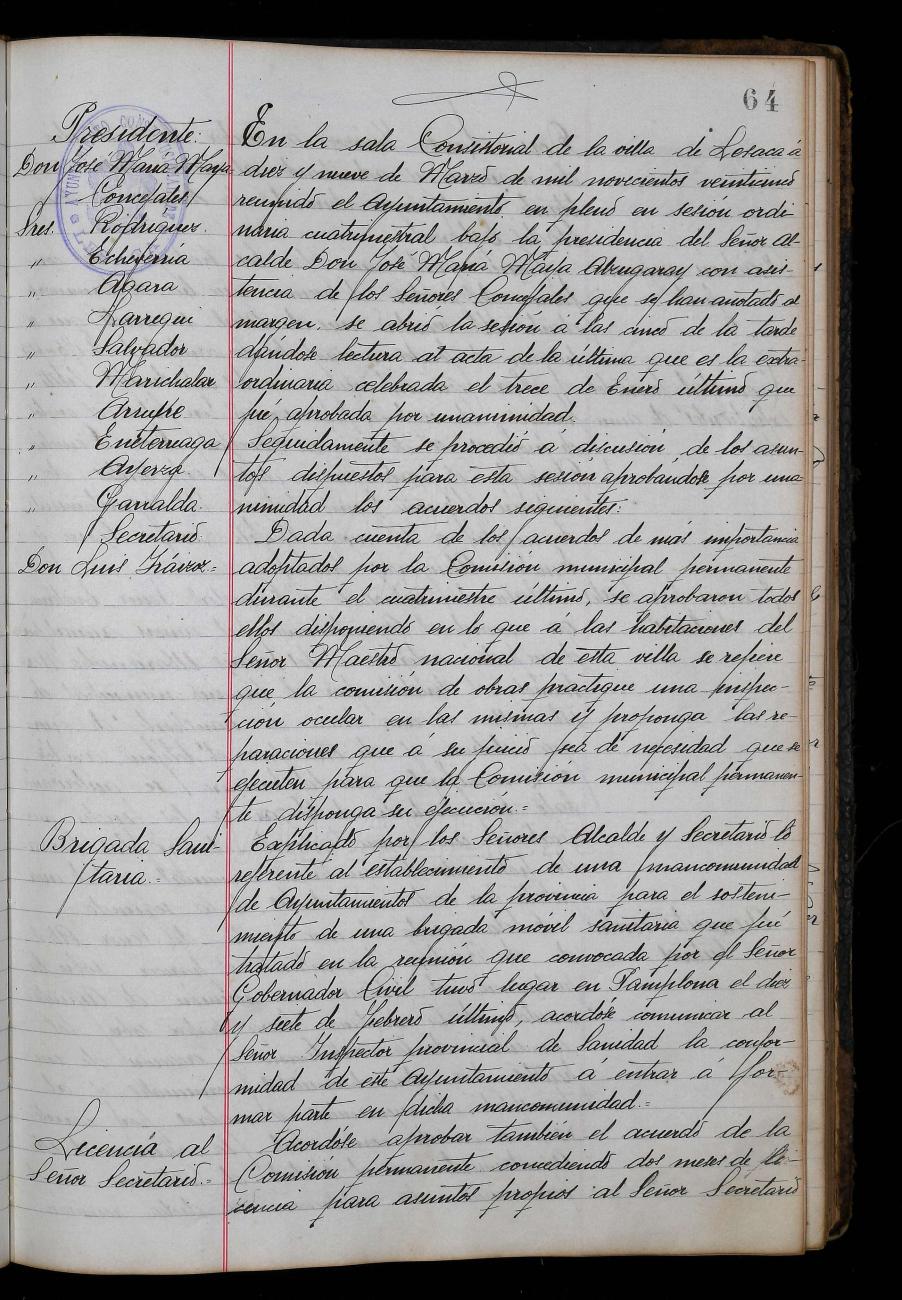 64
Presidente:
Don José María Maya
Concejales
Sres. Rodriguez.
" Echeverria
" Agara
" Larregui
" Salvador
" Marichalar
" Arrufre
" Eneterreaga
" Ayerza
" Garralda.
Secretario.
Don Luis Iráizoz.=
En la sala Consistorial de la villa de Lesaca á
diez y nueve de Marzo de mil novecientos veinticinco
reunido el Ayuntamiento en pleno en sesión ordi-
naria cuatrimestral bajo la presidencia del Señor Al-
calde Don José María Maya Abrugaray con asis-
tencia de los Señores Concejales que se han anotado al
margen. se abrió la sesión á las cinco de la tarde
dándose lectura al acta de la última que es la extra-
ordinaria celebrada el trece de Enero último que
fué aprobada por unanimidad.
Seguidamente se procedió á discusión de los asun-
tos dispuestos para esta sesión aprobándose por una-
nimidad los acuerdos siguientes:
Dada cuenta de los acuerdos de más importancia
adoptados por la Comisión municipal permanente
durante el cuatrimestre último, se aprobaron todos
ellos disponiendo en lo que á las habitaciones del
Señor Maestro nacional de esta villa se refiere
que la comisión de obras practique una inspec-
ción ocular en las mismas y proponga las re-
paraciones que á su juicio sea de necesidad que se
ejecuten para que la Comisión municipal permanen-
te disponga su ejecución.=
Brigada Sani-
taria.=
Explicado por los Señores Alcalde y Secretario lo
referente al establecimiento de una mancomunidad
de Ayuntamientos de la provincia para el sosteni-
miento de una brigada móvil sanitaria que fué
tratado en la reunión que convocada por el Señor
Gobernador Civil tuvo lugar en Pamplona el diez
y siete de febrero último, acordóse comunicar al
Señor Inspector provincial de Sanidad la confor-
midad de este Ayuntamiento á entrar á for-
mar parte en dicha mancomunidad.=
Licencia al
Señor Secretario.=
Acordóse aprobar también el acuerdo de la
Comisión permanente concediendo dos meses de li-
cencia para asuntos propios al Señor Secretario